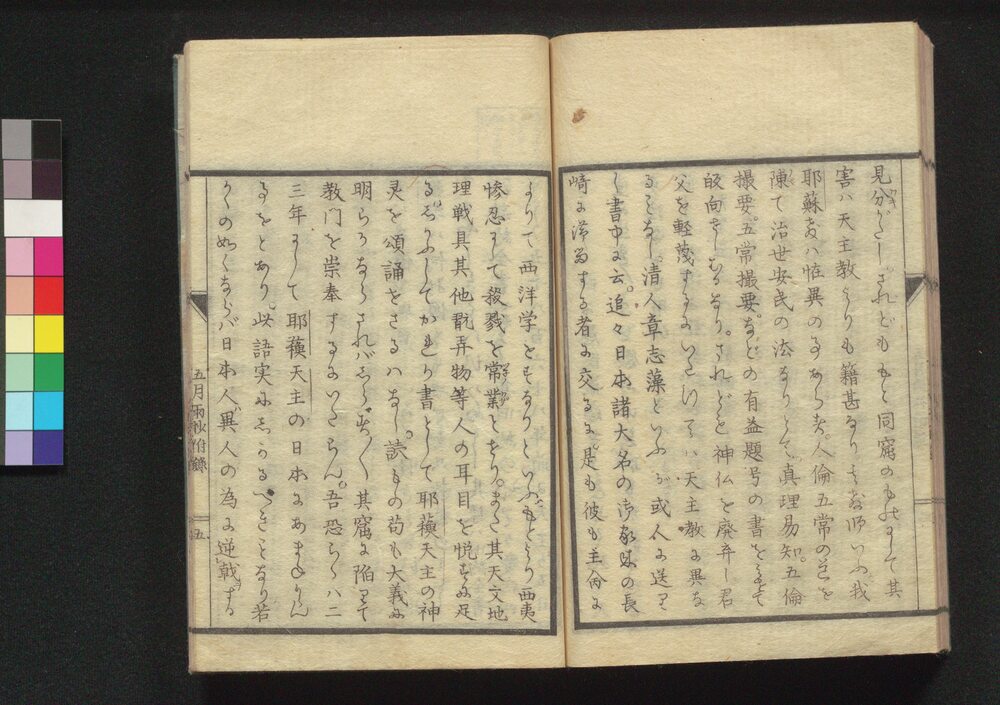 見分がたし。されどももと同窟のものにして其
害ハ天主教よりも籍甚なり其教師いふ我
耶蘇教ハ恠異の事あらず。人倫五常の道を
陳て治世安民の法なりとて。真理易知。五倫
撮要。五常撮要。などの有益題号の書を以て
皈向せしむるなり。されどと神仏を廃弃し君
父を軽蔑するにいたりてハ天主教に異な
ることなし。清人章志藻といふが或人に送り
し書中に云。追々日本諸大名の御家味の長
崎に滞留する者に交るに。是も彼も主命に
よりて西洋学とするなりといふ。もとより西夷
惨忍にして殺戮を常業とせり。また其天文地
理戦具其他翫弄物等人の耳目を悦すに足
るものにしてかれが書として耶蘓天主の神
灵を頌誦せざるハなし。読もの苟も大義に
明らかならざればことごとく其窟に陥りて
教門を崇奉するにいたらん。吾恐らくハ二
三年にして耶蘓天主の日本にあまねからん
事をとあり。此語実にしかるべきことなり若
かくの如くならバ日本人異人の為に逆戟する
五月雨抄附録
五